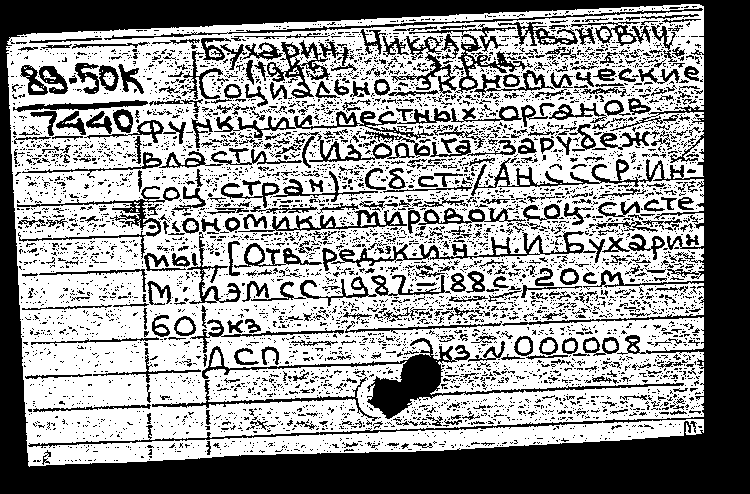 Бухарин, Николай Иванович
89-50К (1945 ред.
Социально-экономические
7440 функции местных органов
власти: (Из опыта зарубеж.
соц. стран): Сб. ст. / АН СССР. Ин-
экономики мировой соц. систе-
мы; [Отв. ред. к.и.н. Н.И. Бухарин
М.: ИЭМСС, 1987.-188 с.; 20 см. -
60 экз.
ДСП Экз. N 000008